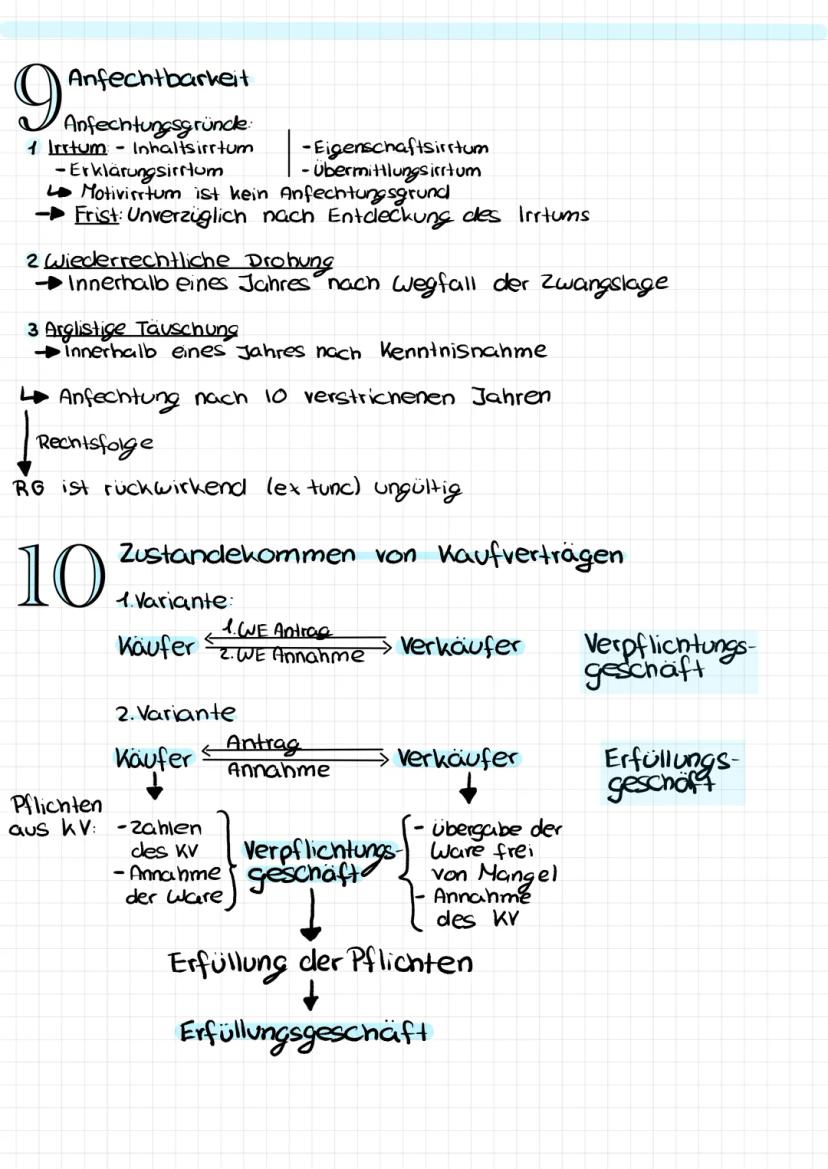 9 Anfechtbarkeit
Anfechtungsgründe:
1 Irrtum: - Inhaltsirrtum
- Erklärungsirrtum
- Eigenschaftsirrtum
- Übermittlungsirrtum
↳ Motivirrtum ist kein Anfechtungsgrund
→ Frist: Unverzüglich nach Entdeckung des Irrtums
2 Wiederrechtliche Drohung
→ Innerhalb eines Jahres nach Wegfall der Zwangslage
3 Arglistige Täuschung
→ innerhalb eines Jahres nach Kenntnisnahme
↳ Anfechtung nach 10 verstrichenen Jahren
Rechtsfolge
RG ist rückwirkend (ex tunc) ungültig
10 Zustandekommen von Kaufverträgen
1. Variante:
1. WE Antrag
Käufer Verkäufer
2. WE Annahme
Verpflichtungs-
geschäft
2. Variante
Antrag
Käufer Verkäufer
Annahme
Erfüllungs-
geschäft
Pflichten
aus KV:
- Zahlen
des KV
- Annahme
der Ware
Verpflichtungs-
geschäft
- Übergabe der
Ware frei
von Mangel
- Annahme
des KV
Erfüllung der Pflichten
Erfüllungsgeschäft